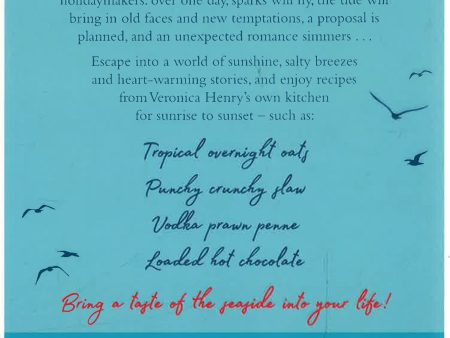 holidaymakers. Over one day, sparks will fly, the tide will
bring in old faces and new temptations, a proposal is
planned, and an unexpected romance simmers . . .
Escape into a world of sunshine, salty breezes
and heart-warming stories, and enjoy recipes
from Veronica Henry's own kitchen
for sunrise to sunset – such as:
Tropical overnight oats
Punchy crunchy slaw
Vodka prawn penne
Loaded hot chocolate
Bring a taste of the seaside into your life!